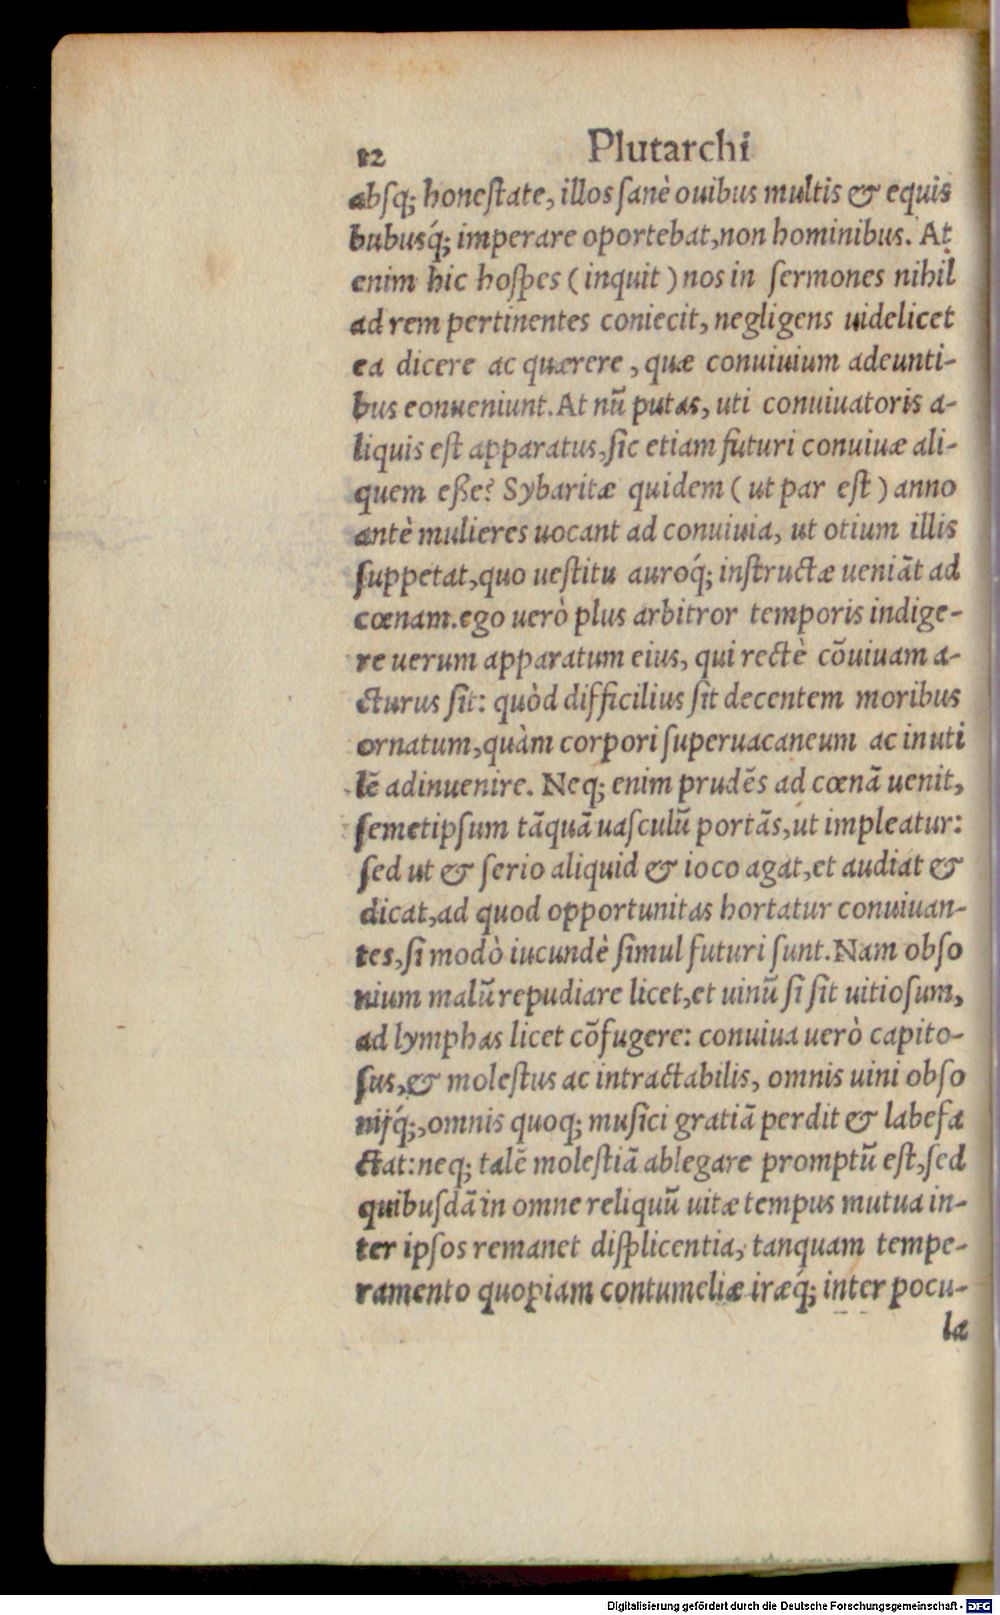 12 Plutarchi
absq; honestate, illos sanè ouibus multis & equis
bubusq́; imperare oportebat,non hominibus. At
enim hic hospes (inquit) nos in sermones nihil
ad rem pertinentes coniecit, negligens uidelicet
ea dicere ac quærere, quæ conuiuium adeunti-
bus conueniunt. At nū putas, uti conuiuatoris a-
liquis est apparatus, sic etiam futuri conuiuæ ali-
quem eße? Sybaritæ quidem (ut par est) anno
antè mulieres uocant ad conuiuia, ut otium illis
suppetat, quo uestitu auroq́; instructæ ueniāt ad
cœnam. ego uerò plus arbitror temporis indige-
re uerum apparatum eius, qui rectè cōuiuam a-
cturus sit: quòd difficilius sit decentem moribus
ornatum, quàm corpori superuacaneum ac inuti
lē adinuenire. Neq; enim prudēs ad cœnā uenit,
semetipsum tāquā uasculū portās, ut impleatur:
sed ut & serio aliquid & ioco agat, et audiat &
dicat, ad quod opportunitas hortatur conuiuan-
tes, si modò iucundè simul futuri sunt. Nam obso
nium malū repudiare licet, et uinū si sit uitiosum,
ad lymphas licet cōfugere: conuiua uerò capito-
sus, & molestus ac intractabilis, omnis uini obso
nijq́;, omnis quoq; musici gratiā perdit & labefa
ctat: neq; talē molestiā ablegare promptū est, sed
quibusdā in omne reliquū uitæ tempus mutua in-
ter ipsos remanet displicentia, tanquam tempe-
ramento quopiam contumeliæ iræq́; inter pocu-
la
Digitalisierung gefördert durch die Deutsche Forschungsgemeinschaft - DFG